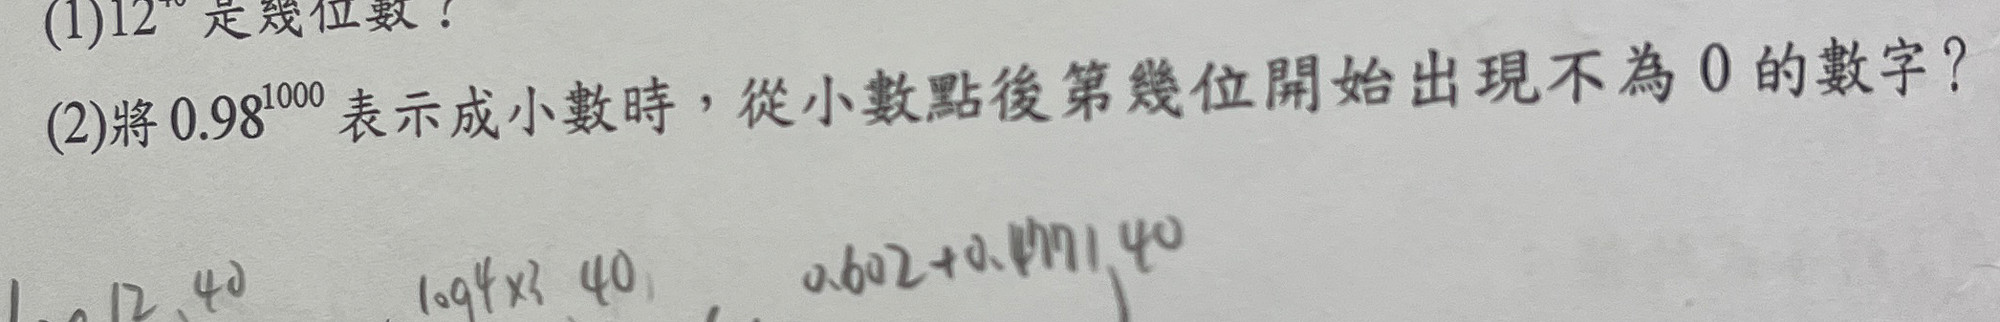 (1)12⁴⁰ 是幾位數？
(2)將 0.98¹⁰⁰⁰ 表示成小數時，從小數點後第幾位開始出現不為 0 的數字？
12 40 log4×3 40 0.602+0.4771 40